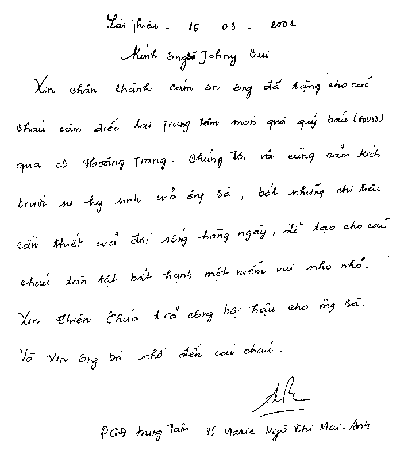 Lái thiêu - 16 - 03 - 2002
Kính ông bà Johny Bui
Xin chân thành cám ơn ông đã tặng cho các
cháu câm điếc tại trung tâm món quà quý báu
qua cô Hoàng Trang. Chúng tôi vô cùng cảm kích
trước sự hy sinh của ông bà, bớt những chi tiêu
cần thiết của đời sống hằng ngày, để tạo cho các
cháu tàn tật bất hạnh một niềm vui nho nhỏ.
Xin Thiên Chúa trả công bội hậu cho ông bà.
Và xin ông bà nhớ đến các cháu.
PGĐ trung Tâm Maria Ngô Thị Mai-Anh